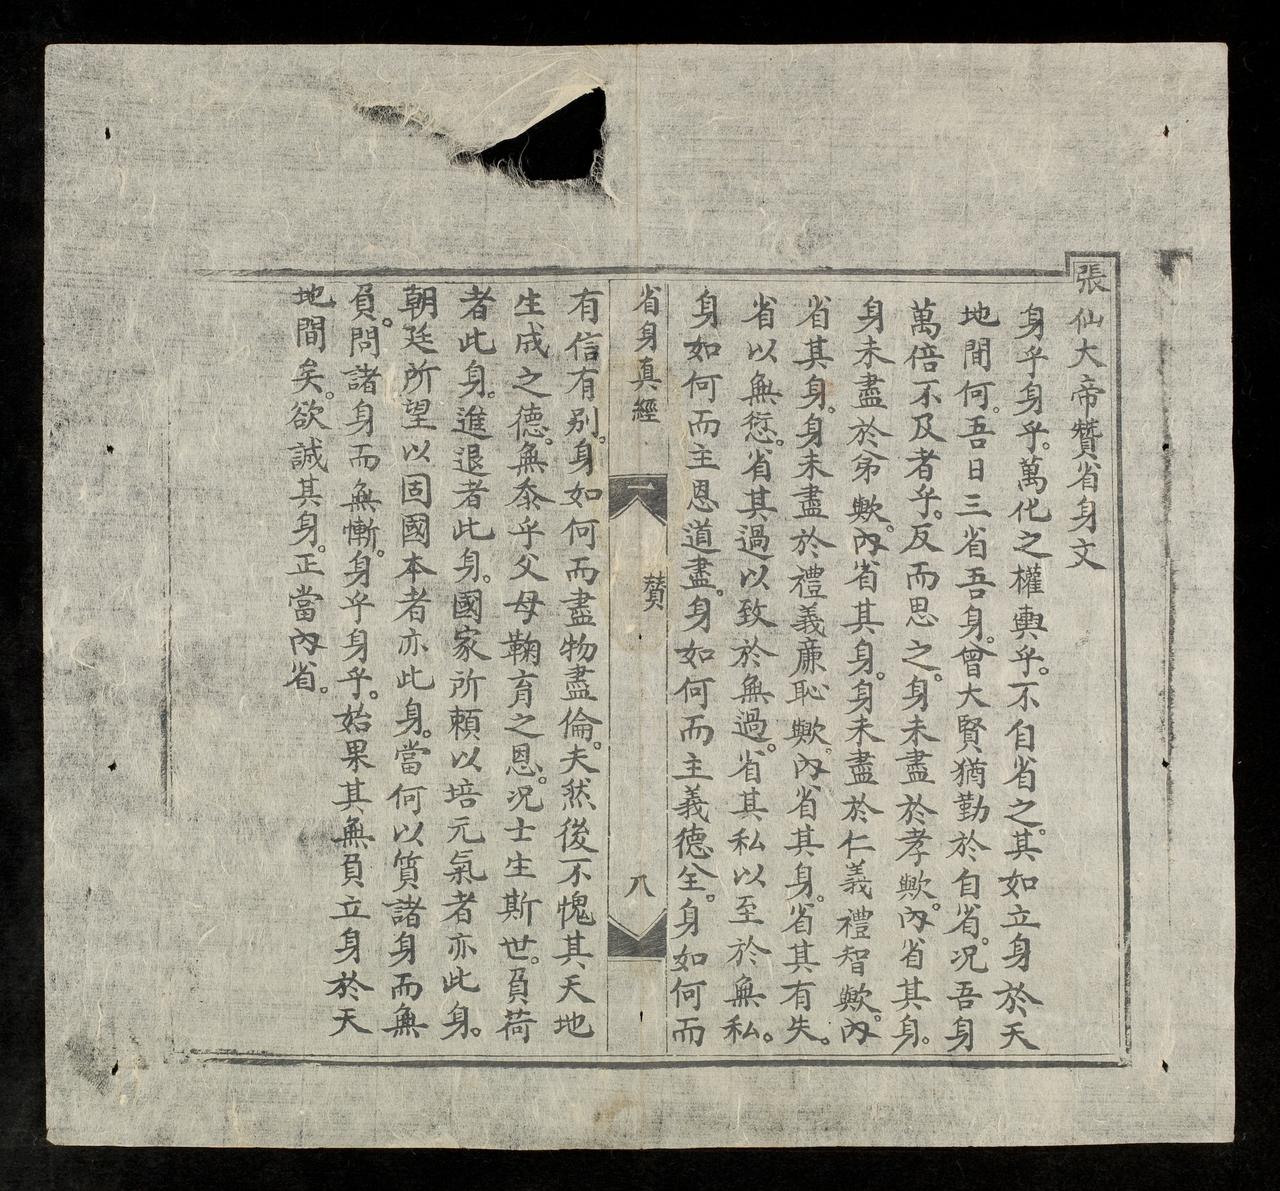 張仙大帝贊省身文
身乎身乎。萬化之權輿乎。不自省之。其如立身於天
地間何。吾日三省吾身。曾大賢猶勤於自省。况吾身
萬倍不及者乎。反而思之。身未盡於孝歟。內省其身。
身未盡於弟歟。內省其身。身未盡於仁義禮智歟。內
省其身。身未盡於禮義廉恥歟。內省其身。省其有失。
省以無愆。省其過以致於無過。省其私以至於無私。
身如何而主恩道盡。身如何而主義德全。身如何而
省身真經 一 贊 八
有信有別。身如何而盡物盡倫。夫然後不愧其天地
生成之德。無忝乎父母鞠育之恩。况士生斯世。負荷
者此身。進退者此身。國家所賴以培元氣者亦此身。
朝廷所望以固國本者亦此身。當何以質諸身而無
負。問諸身而無慚。身乎身乎。始果其無負立身於天
地間矣。欲誠其身。正當內省。